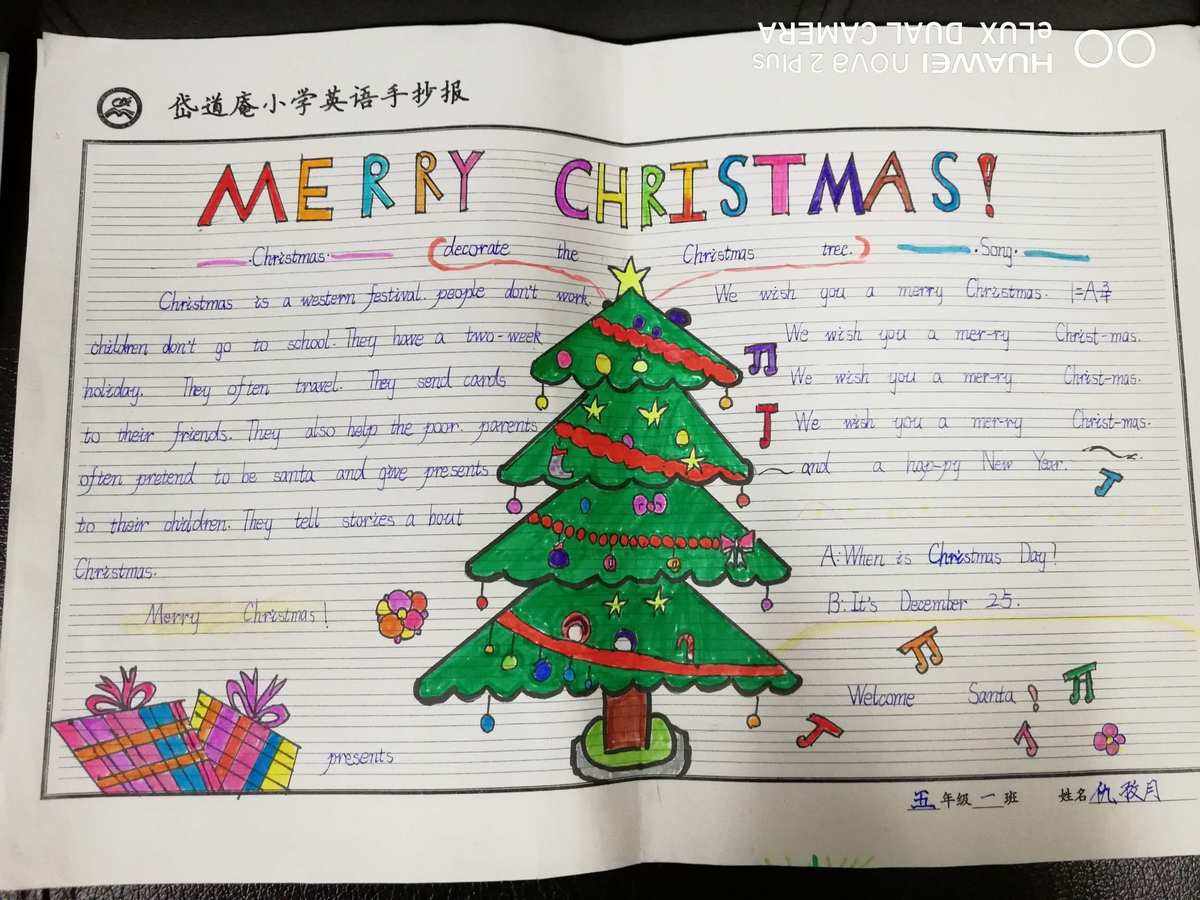 HUAWEI nova 2 Plus
eLUX DUAL CAMERA
岱道庵小学英语手抄报
MERRY CHRISTMAS!
·Christmas·
(decorate the Christmas tree.)
·Song·
Christmas is a western festival. people don't work.
children don't go to school. They have a two-week
holiday. They often travel. They send cards
to their friends. They also help the poor. parents
often pretend to be santa and give presents
to their children. They tell stories a bout
Christmas.
Merry Christmas!
presents
We wish you a merry Christmas. 1=A 3/4
We wish you a mer-ry Christ-mas.
We wish you a mer-ry Christ-mas.
We wish you a mer-ry Christ-mas.
and a hap-py New Year.
A: When is Christmas Day?
B: It's December 25.
Welcome Santa!
五年级一班 姓名仇